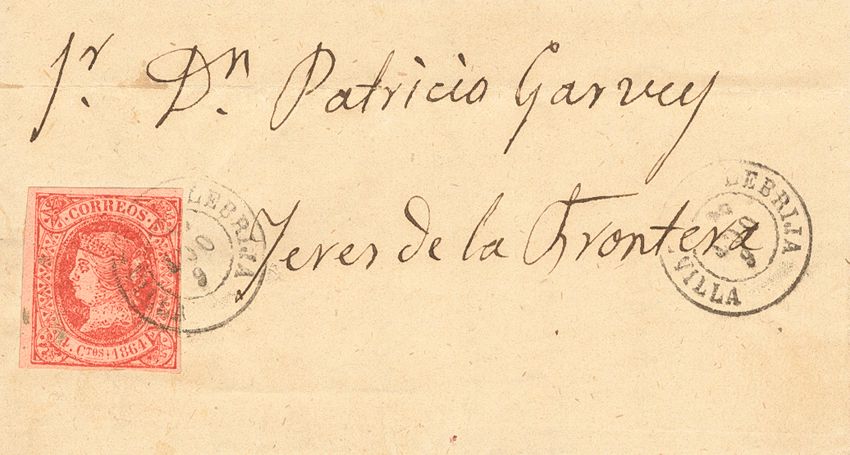 Sr. Dn. Patricio Garvey
Jeres de la Frontera
CORREOS
CTOS. 1864
LEBRIJA
LEBRIJA
VILLA